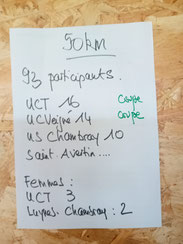 50km
93 participants.
UCT 16 Coupe
UC Veigné 14 Coupe
US Chambray 10
Saint Avertin ....
Femmes :
UCT 3
Luynes. Chambray : 2